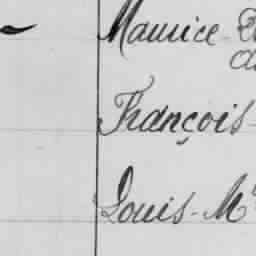 Maurice
François-
Louis-M